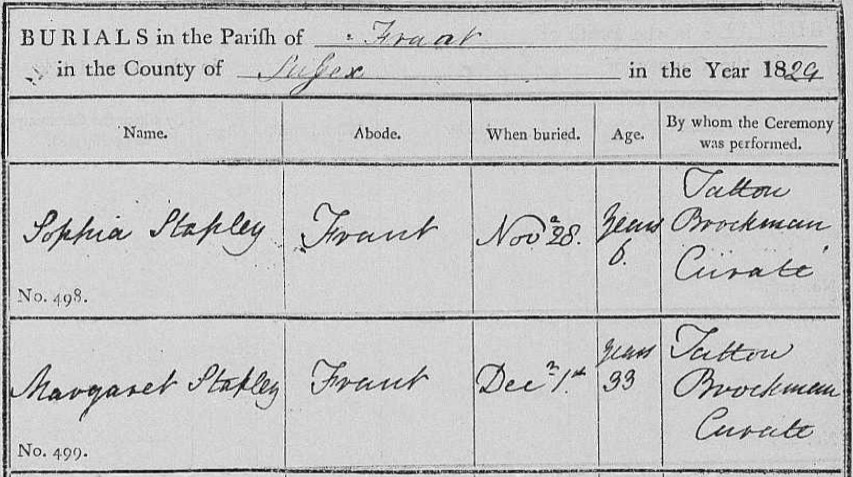 BURIALS in the Parish of Frant
in the County of Sussex in the Year 1829
Name. Abode. When buried. Age. By whom the Ceremony was performed.
Sophia Stapley Frant Novr 28. Years 6. Tatton Brockman Curate
No. 498.
Margaret Stapley Frant Decr 1st years 33 Tatton Brockman Curate
No. 499.